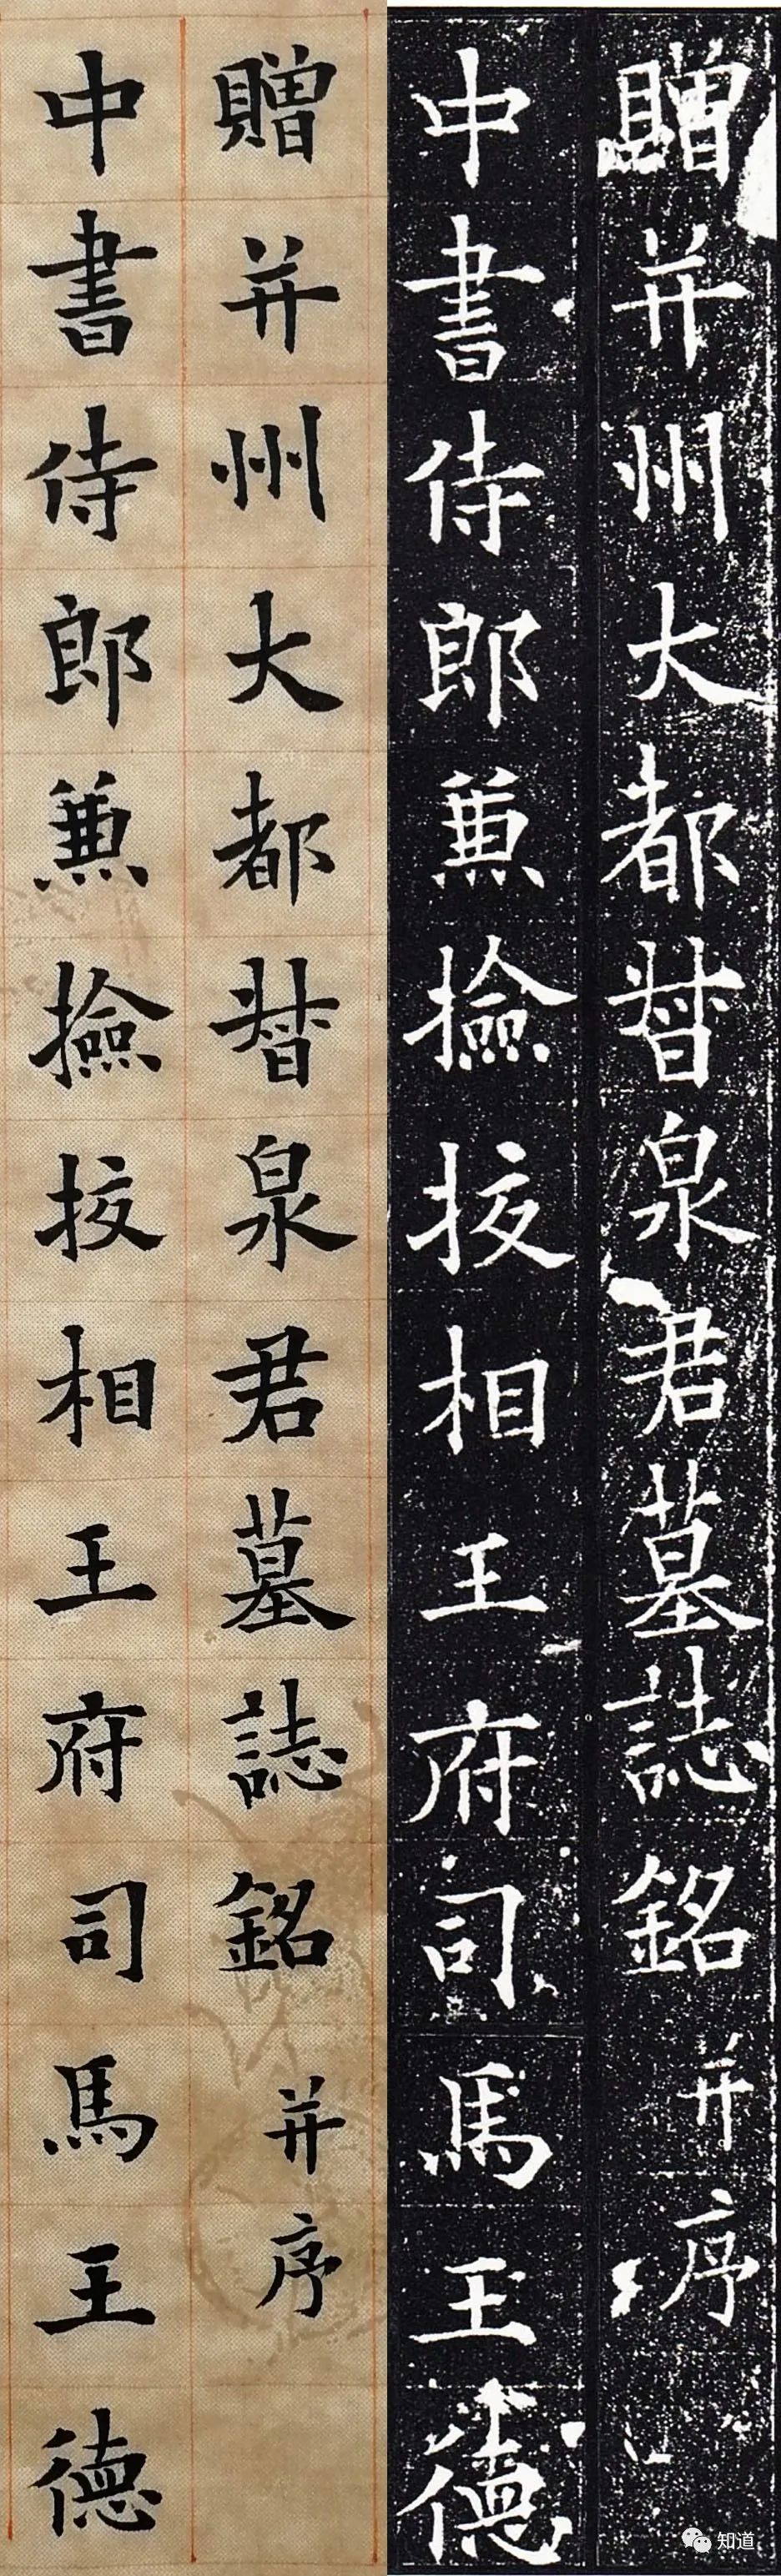 贈并州大都督泉君墓誌銘并序
中書侍郎兼撿挍相王府司馬王德
贈并州大都督泉君墓誌銘并序
中書侍郎兼撿挍相王府司馬王德
知道